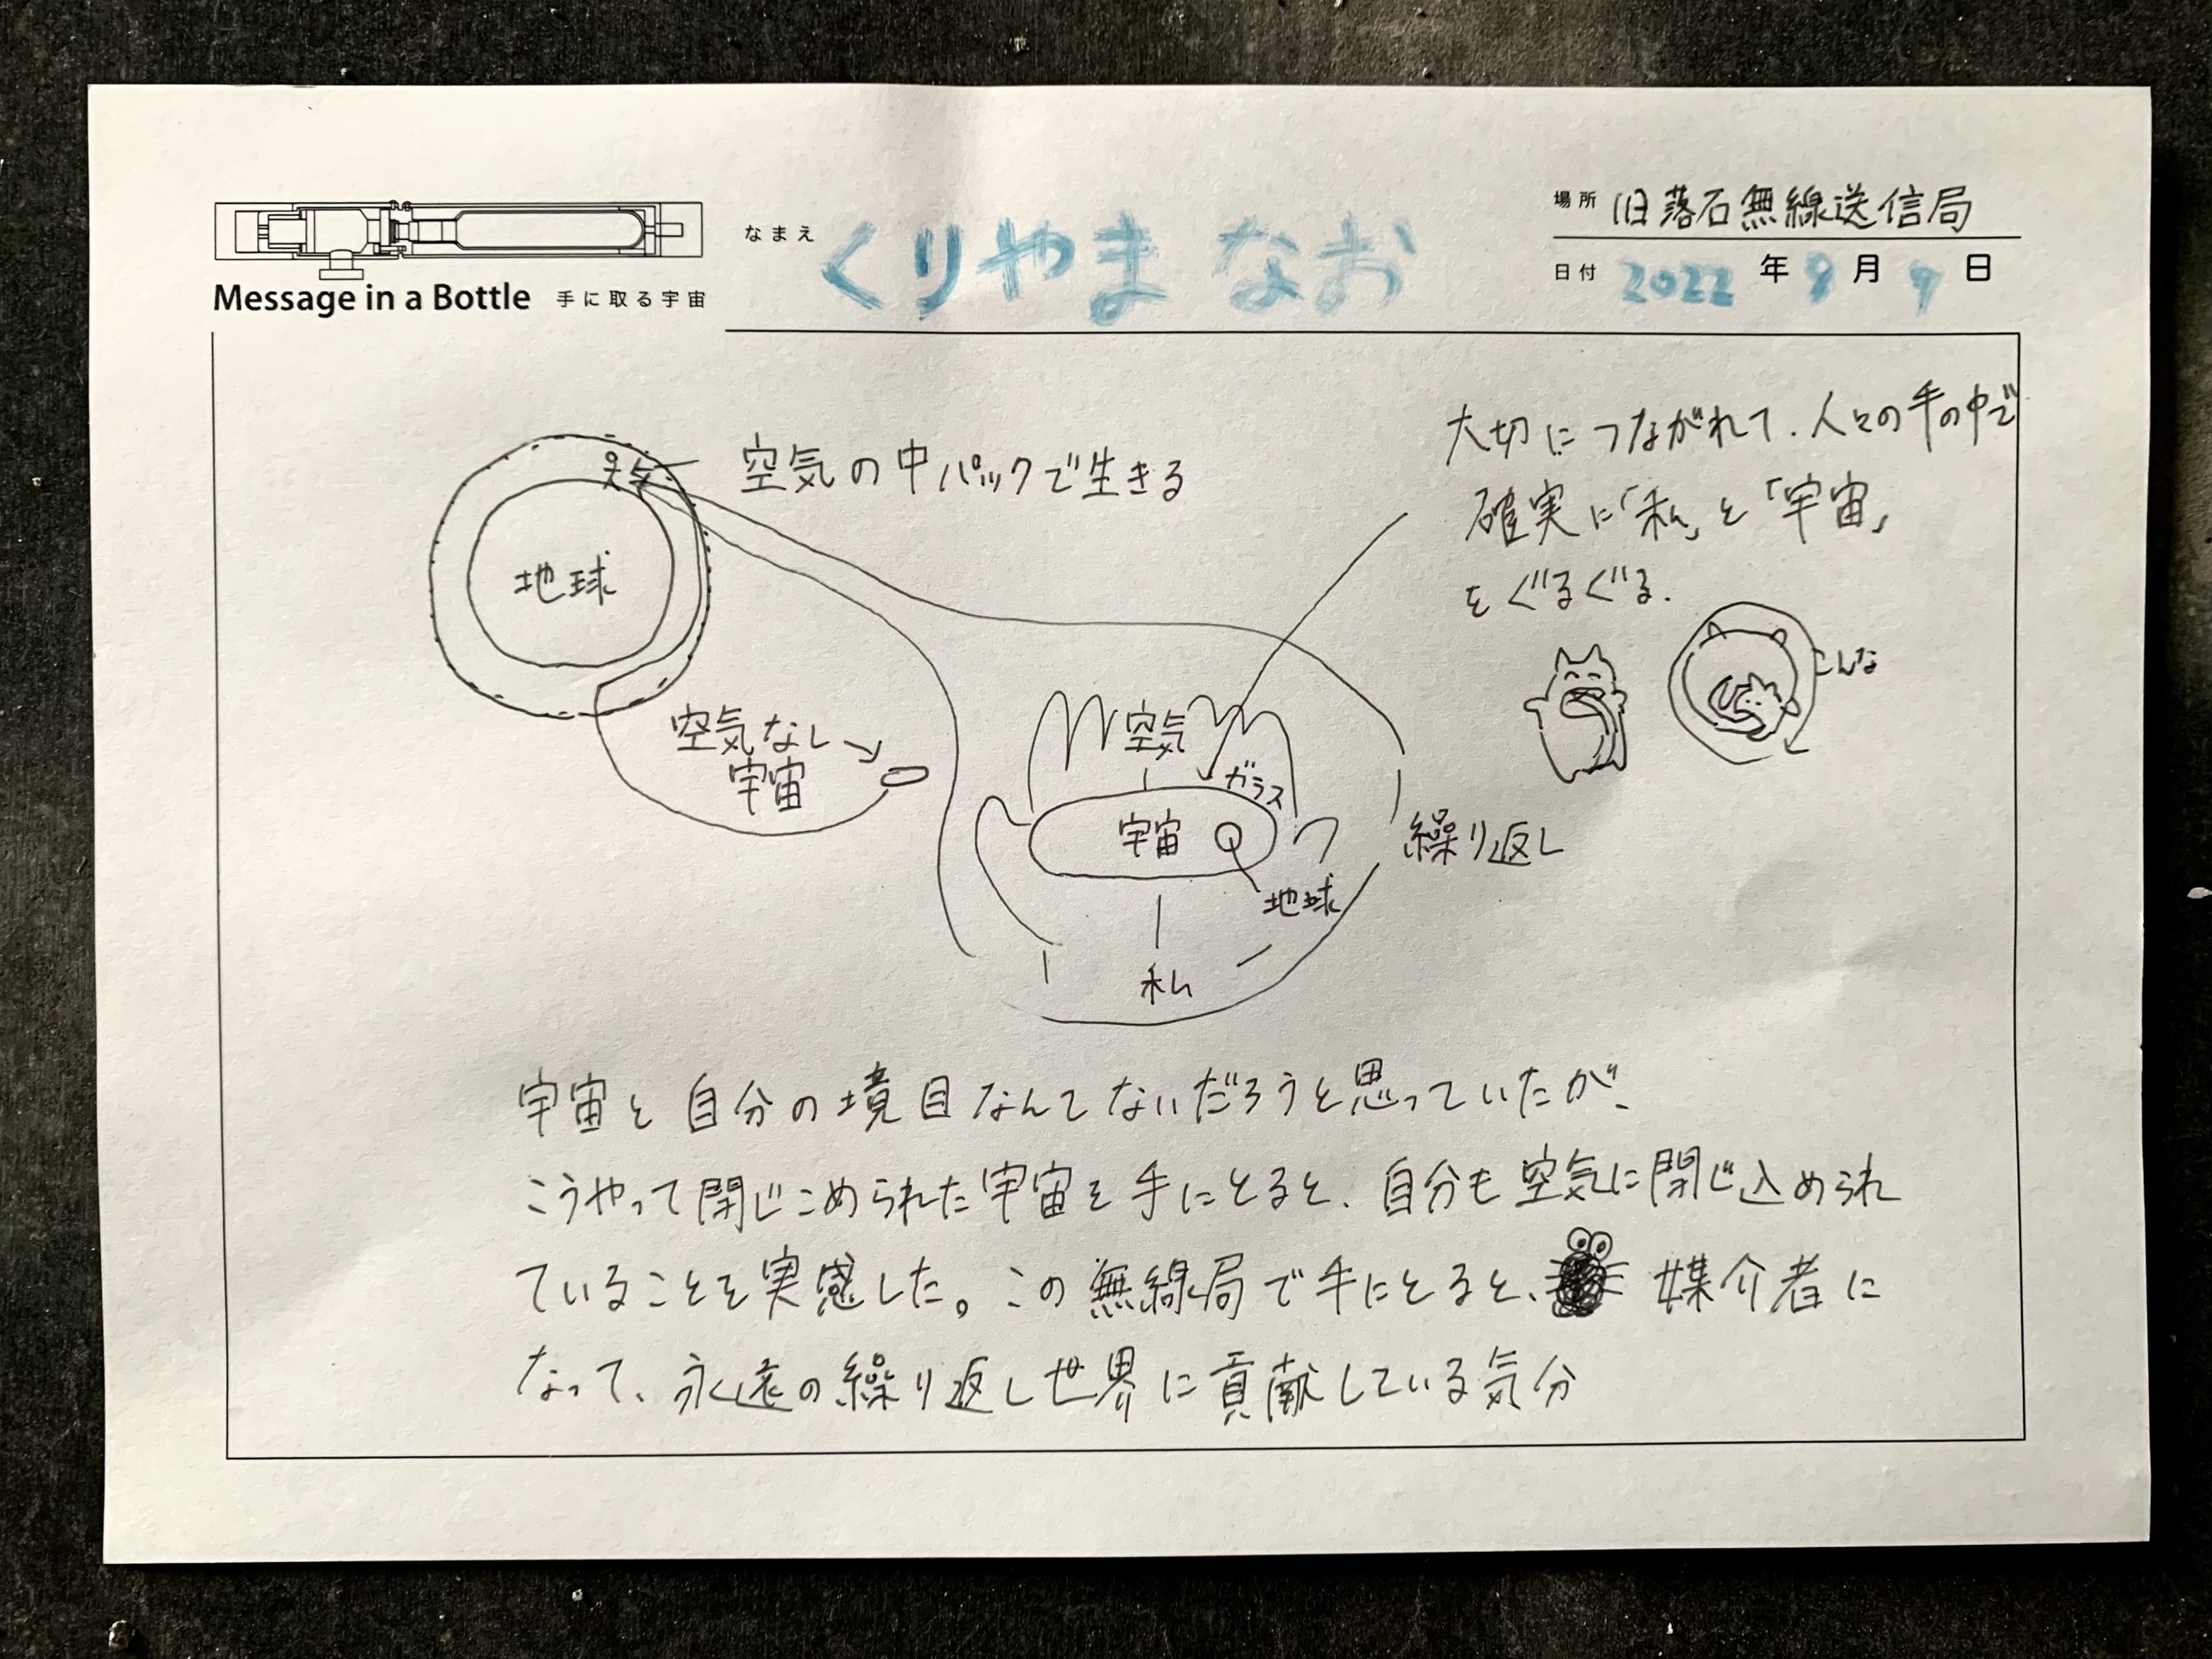 Message in a Bottle 手に取る宇宙
なまえ くりやま なお
場所 旧落石無線送信局
日付 2022 年 8 月 9 日
大切につながれて、人々の手の中で
確実に「私」と「宇宙」
をぐるぐる.
こんな
空気の中パックで生きる
地球
空気なし
宇宙
空気
ガラス
宇宙
地球
繰り返し
私
宇宙と自分の境目なんてないだろうと思っていたが、
こうやって閉じこめられた宇宙を手にとると、自分も空気に閉じ込められ
ていることを実感した。この無線局で手にとると、媒介者に
なって、永遠の繰り返し世界に貢献している気分